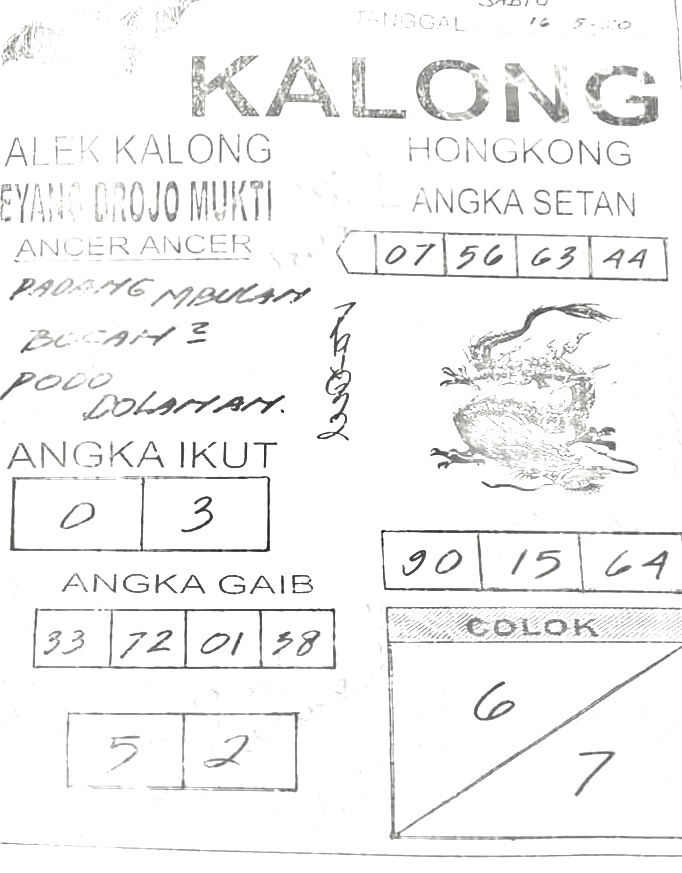 SABTU
TANGGAL 16-5-20
KALONG
ALEK KALONG
HONGKONG
EYANG DROJO MUKTI
ANGKA SETAN
ANCER ANCER
07 56 63 44
PADANG MBULAN
BOCAH 2
PODO
DOLANAN.
7
ANGKA IKUT
0 3
90 15 64
ANGKA GAIB
COLOK
33 72 01 38
6
5 2
7